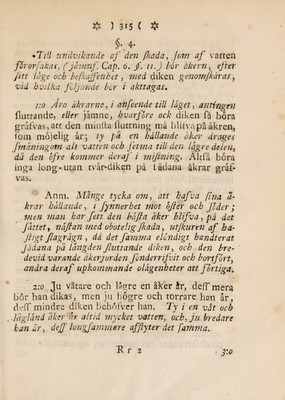 ☼ ) 315 ( ☼
§. 4.
Till undvikande af den skada, som af vatten
förorsakas, (jämnf. Cap. 6. §. 11.) bör åkern, efter
sitt läge och beskaffenhet, med diken genomskäras,
vid hvilka följande bör i akttagas.
1:o Äro åkrarne, i anseende till läget, antingen
sluttande, eller jämne, hvarföre ock diken så böra
gräfvas, att den minsta sluttning må blifva på åkren,
som möjelig är; ty på en hållande åker drages
småningom alt vatten och fetma till den lägre delen,
då den öfre kommer deraf i mistning. Altså böra
inga long-utan tvär-diken på sådana åkrar gräf-
vas.
Anm. Månge tycka om, att hafva sina å-
krar hållande, i synnerhet mot öster och söder;
men man har sett den bästa åker blifva, på det
sättet, nästan med obotelig skada, utskuren af ha-
stigt slagrägn, då det samma eländigt handterat
sådana på längden sluttande diken, och den bre-
devid varande åkerjorden sönderrifvit och bortfört,
andra deraf upkommande olägenheter att förtiga.
2:o Ju våtare och lägre en åker är, dess mera
bör han dikas, men ju högre och torrare han är,
dess mindre diken behöfver han. Ty i en våt och
lägländ åker är altid mycket vatten, och, ju bredare
han är, dess longsammare afflyter det samma.
R r 2
3:o